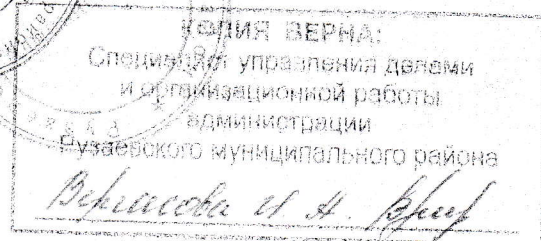 КОПИЯ ВЕРНА:
Специалист управления делами
и организационной работы
администрации
Рузаевского муниципального района
И Н